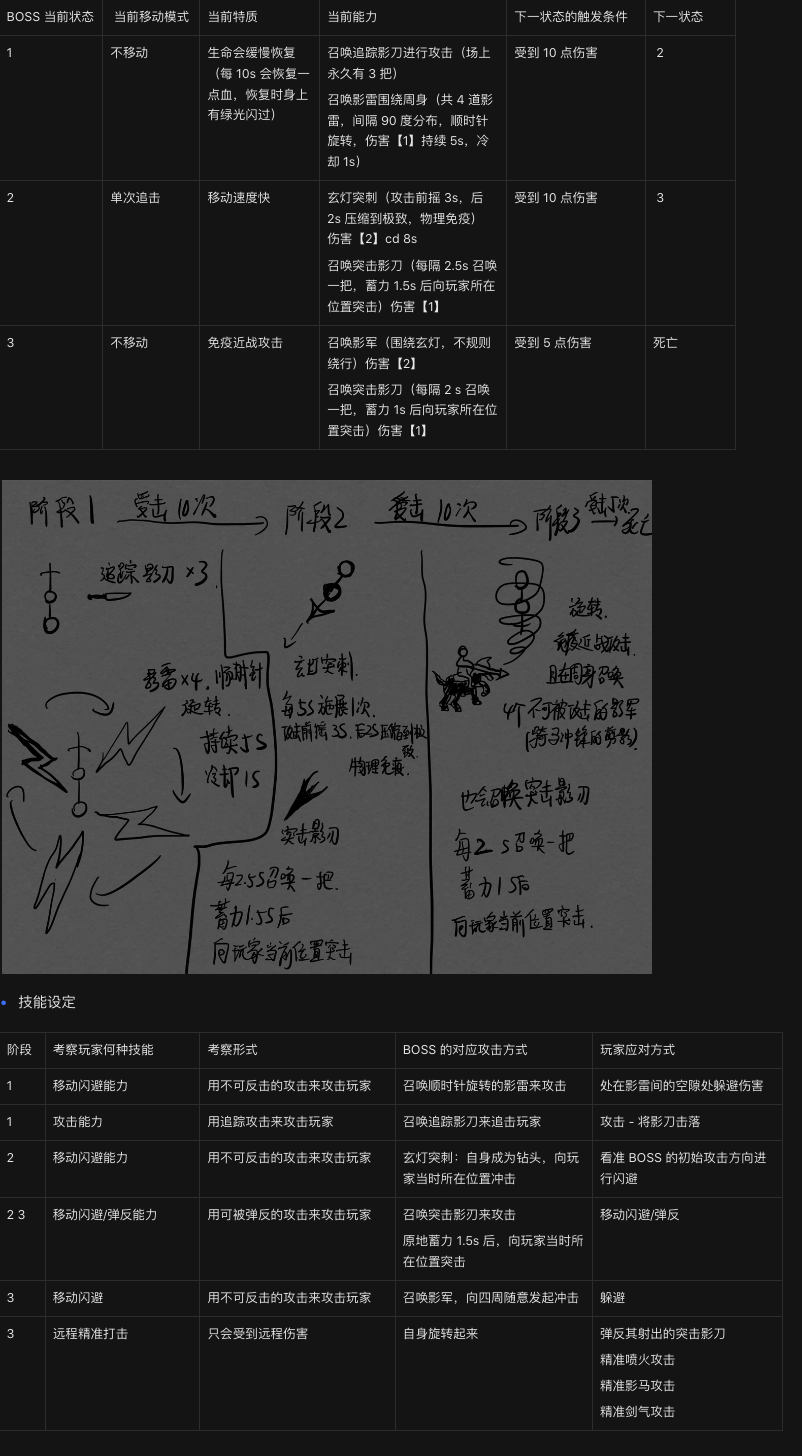 BOSS 当前状态 当前移动模式 当前特质 当前能力 下一状态的触发条件 下一状态
1 不移动 生命会缓慢恢复
（每 10s 会恢复一
点血，恢复时身上
有绿光闪过）
召唤追踪影刀进行攻击（场上
永久有 3 把）
召唤影雷围绕周身（共 4 道影
雷，间隔 90 度分布，顺时针
旋转，伤害【1】持续 5s，冷
却 1s）
受到 10 点伤害 2
2 单次追击 移动速度快
玄灯突刺（攻击前摇 3s，后
2s 压缩到极致，物理免疫）
伤害【2】cd 8s
召唤突击影刀（每隔 2.5s 召唤
一把，蓄力 1.5s 后向玩家所在
位置突击）伤害【1】
受到 10 点伤害 3
3 不移动 免疫近战攻击
召唤影军（围绕玄灯，不规则
绕行）伤害【2】
召唤突击影刀（每隔 2 s 召唤
一把，蓄力 1s 后向玩家所在位
置突击）伤害【1】
受到 5 点伤害 死亡
阶段1 受击10次 阶段2 受击10次 阶段3 受击5次 死亡
追踪影刀×3.
影雷×4, 顺时针
旋转.
持续5S
冷却1S
玄灯突刺.
每5S施展1次.
攻击前摇3S.后2S压缩到极
致.
物理免疫.
突击影刀
每2.5S召唤一把.
蓄力1.5S后
向玩家当前位置突击
旋转.
免疫近战攻击.
且在周身召唤
4个不可被攻击的影军
(骑马冲锋的剪影).
也会召唤突击影刀
每2S召唤一把
蓄力1S后
向玩家当前位置突击.
技能设定
阶段 考察玩家何种技能 考察形式 BOSS 的对应攻击方式 玩家应对方式
1 移动闪避能力 用不可反击的攻击来攻击玩家 召唤顺时针旋转的影雷来攻击 处在影雷间的空隙处躲避伤害
1 攻击能力 用追踪攻击来攻击玩家 召唤追踪影刀来追击玩家 攻击 - 将影刀击落
2 移动闪避能力 用不可反击的攻击来攻击玩家
玄灯突刺：自身成为钻头，向玩
家当时所在位置冲击
看准 BOSS 的初始攻击方向进
行闪避
2 3 移动闪避/弹反能力 用可被弹反的攻击来攻击玩家
召唤突击影刃来攻击
原地蓄力 1.5s 后，向玩家当时所
在位置突击
移动闪避/弹反
3 移动闪避 用不可反击的攻击来攻击玩家 召唤影军，向四周随意发起冲击 躲避
3 远程精准打击 只会受到远程伤害 自身旋转起来 弹反其射出的突击影刀
精准喷火攻击
精准影马攻击
精准剑气攻击